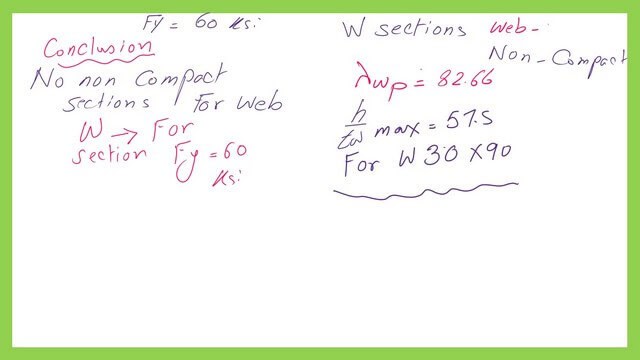 Fy = 60 ksi
Conclusion
No non Compact
sections for web
W → For
section Fy = 60
ksi
W sections web -
Non - Compact
λwp = 82.66
h/tw max = 57.5
For W 30 X 90